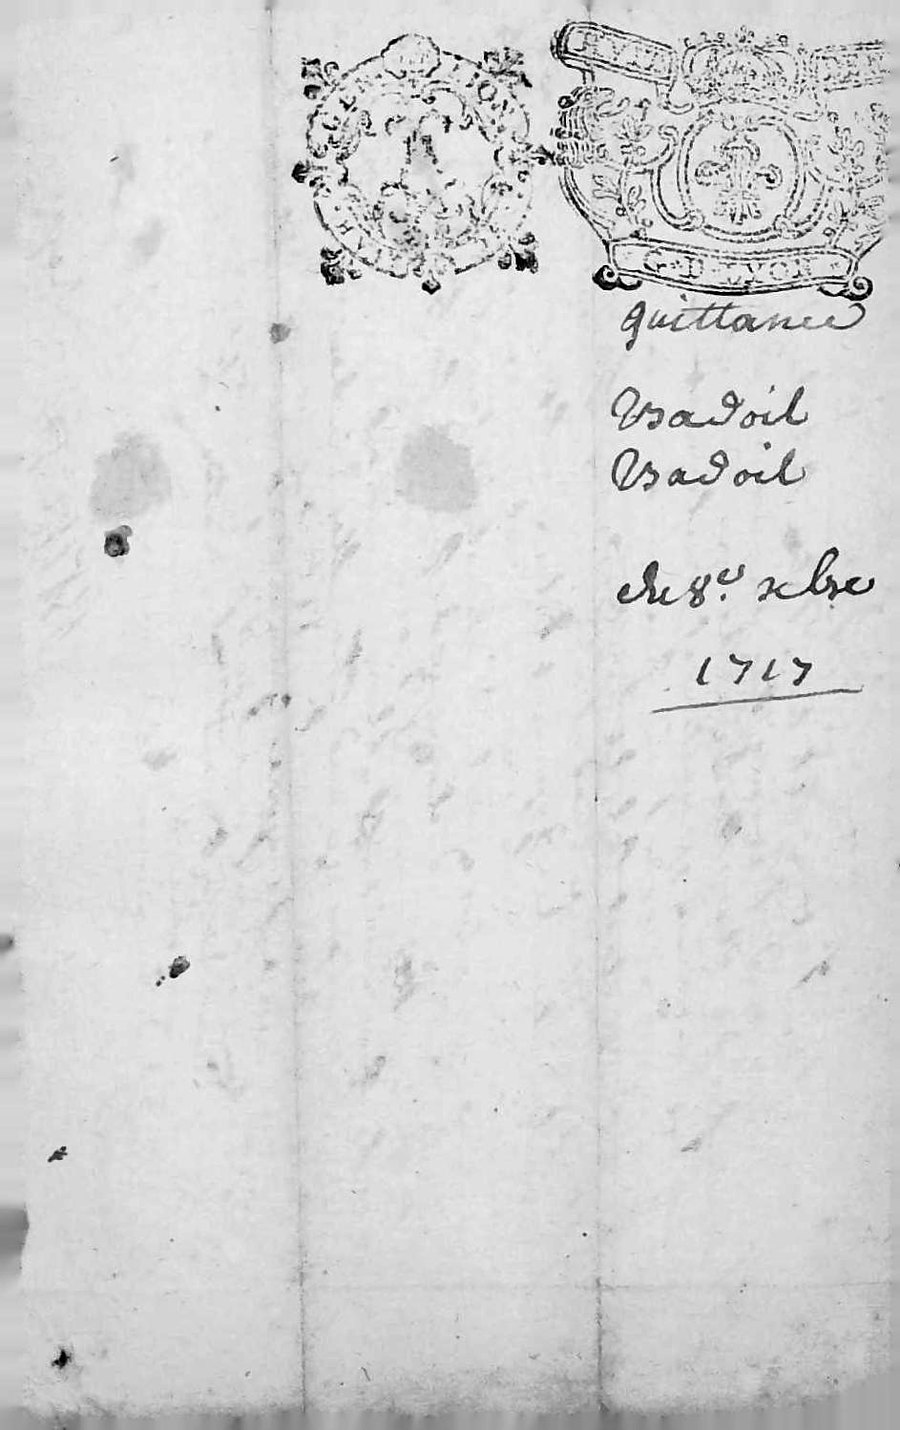 G · D · LYON
quittance
Badoil
Badoil
du 8.e xbre
1717